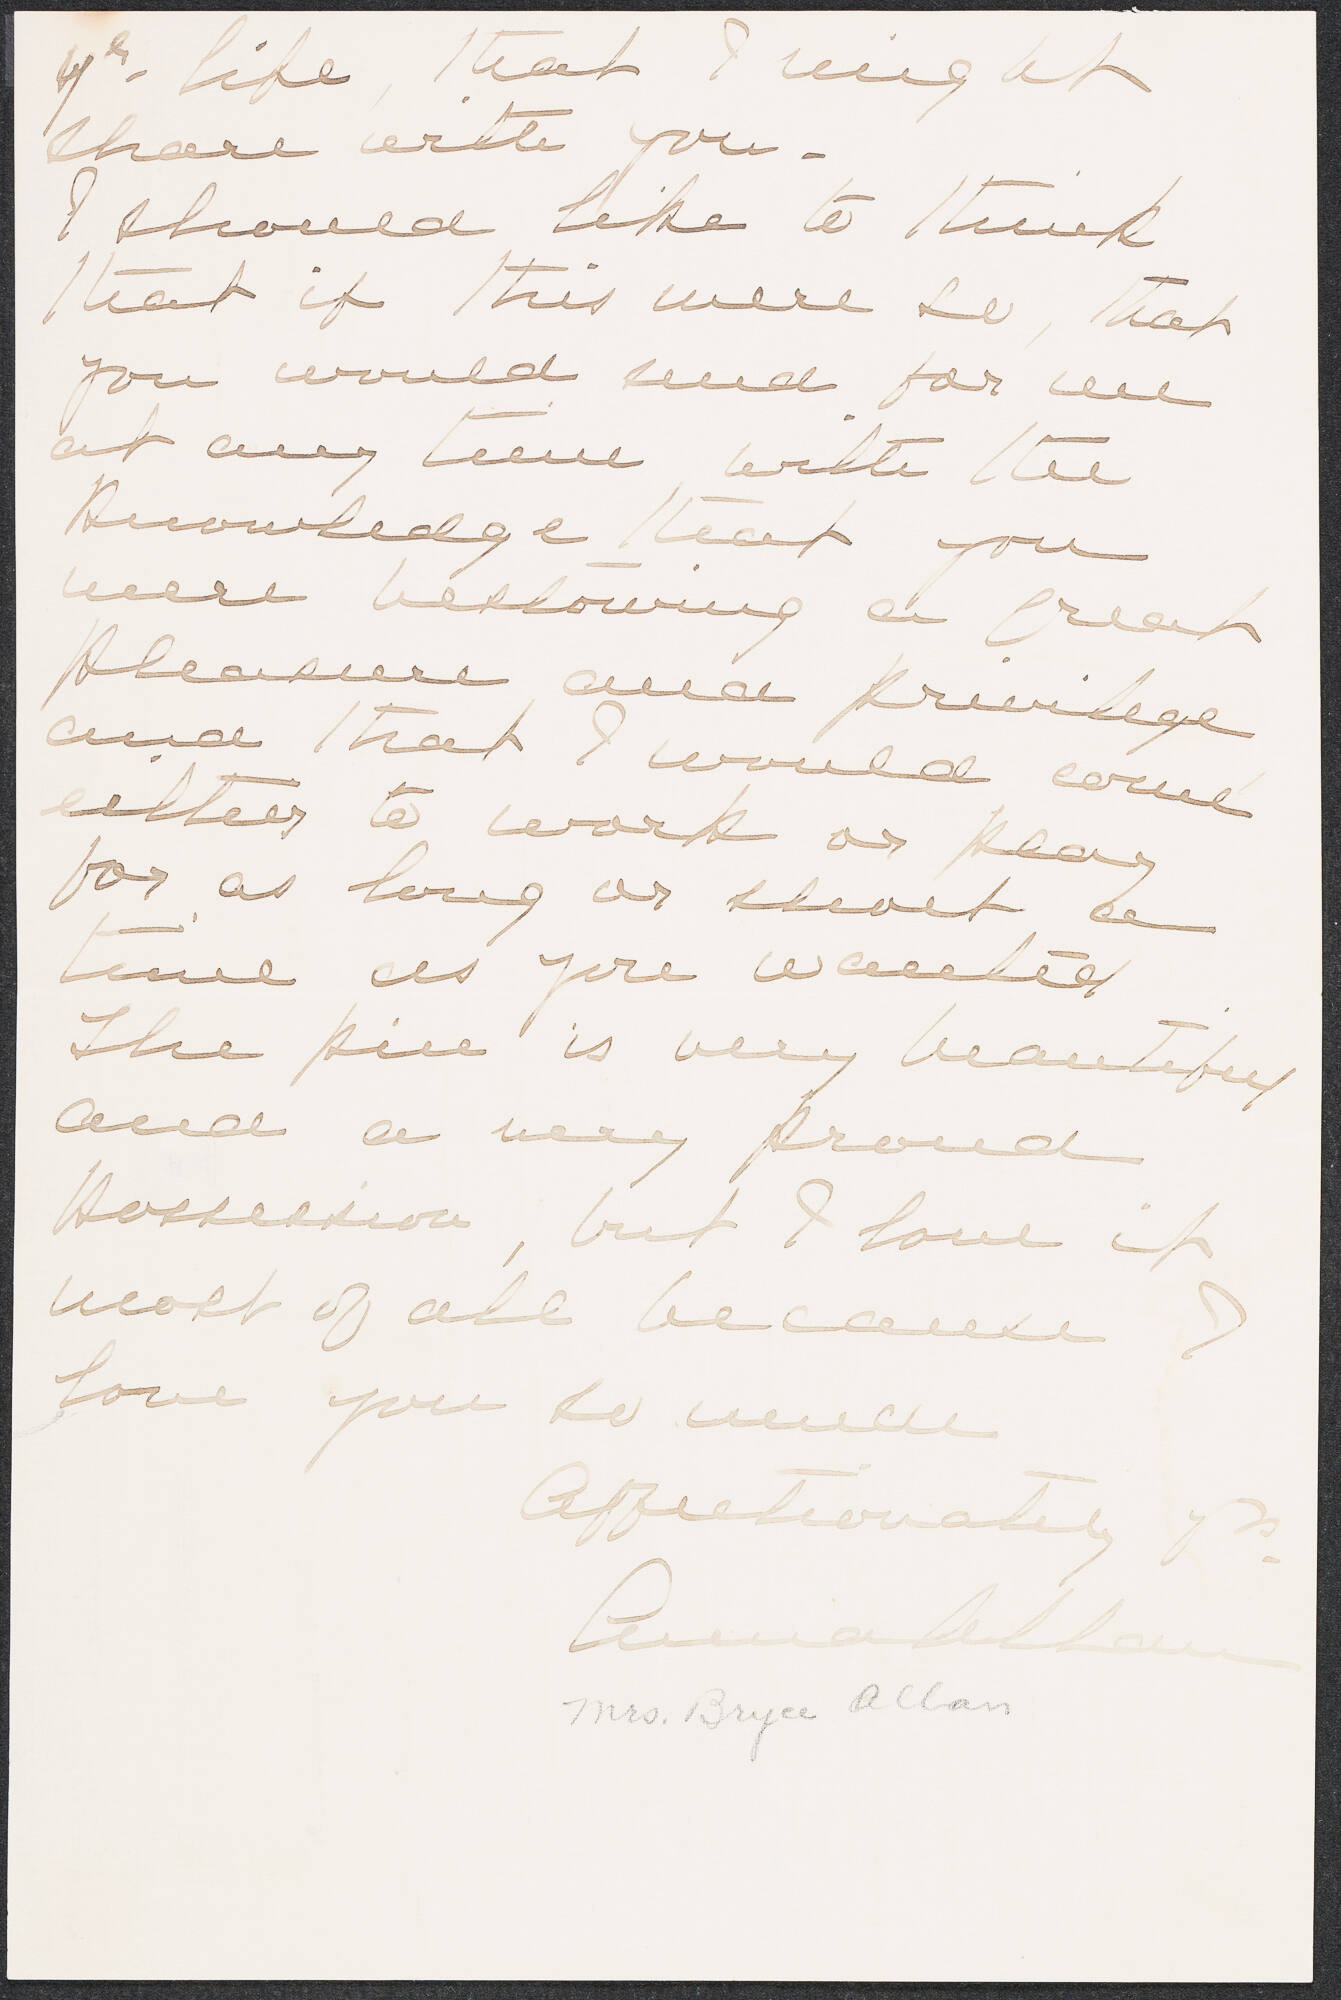 yr. life, that I might
share with you -
I should like to think
that if this were so, that
you would send for me
at any time, with the
knowledge that you
were bestowing a great
pleasure and privilege
and that I would come
either to work or play
for as long or short a
time as you wanted
The pin is very beautiful
and a very proud
possession, but I love it
most of all because I
love you so much
Affectionately yrs.
Anna Allan
Mrs. Bryce Allan